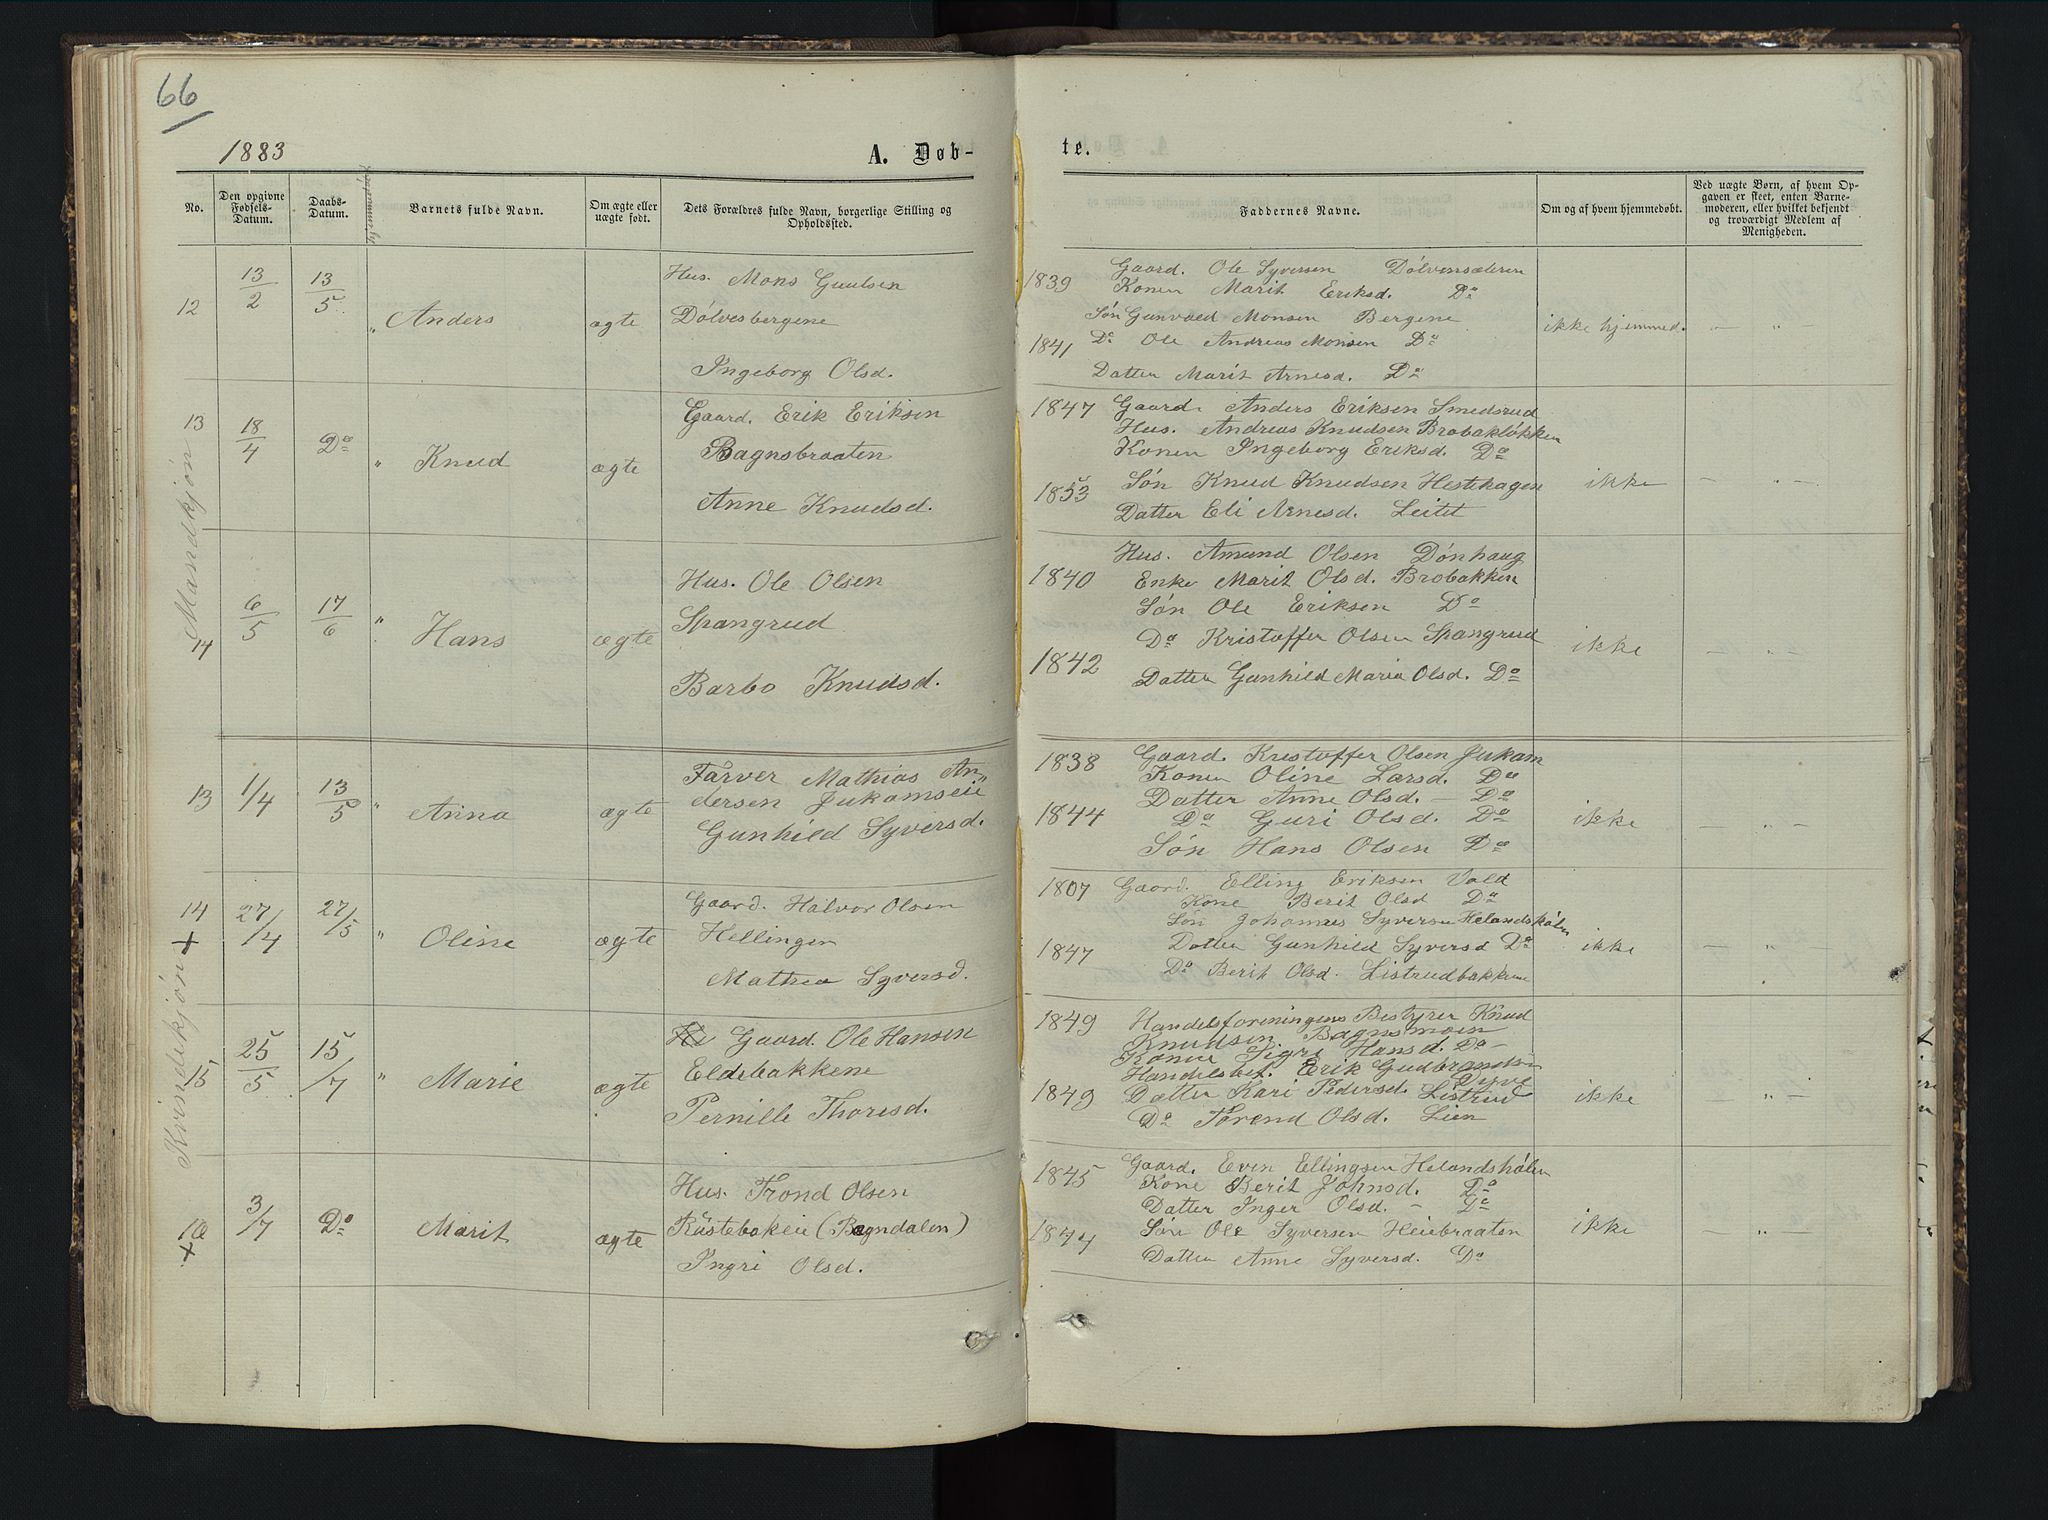 66
1883
A. Døb-
No.
Den opgivne Fødsels-Datum.
Daabs-Datum.
Hjemmedøbt
Barnets fulde Navn.
Om ægte eller uægte født.
Dets Forældres fulde Navn, borgerlige Stilling og Opholdssted.
Mandkjøn
12 13/2 13/5 " Anders ægte
Hus. Mons Guulsen
Dølvesbergene
Ingeborg Olsd.
13 18/4 Do " Knud ægte
Gaard. Erik Eriksen
Bagnsbraaten
Anne Knudsd.
14 6/5 17/6 " Hans ægte
Hus. Ole Olsen
Spangrud
Barbo Knudsd.
Kvindekjøn
13 1/4 13/5 " Anna ægte
Farver Mathias An„
dersen Jukamseie
Gunhild Syversd.
14 + 27/4 27/5 " Oline ægte
Gaard. Halvor Olsen
Hellingen
Mathea Syversd.
15 25/5 15/7 " Marie ægte
Gaard. Ole Hansen
Eldebakkene
Pernille Thoresd.
16 + 3/7 Do Marit ægte
Hus. Trond Olsen
Røstebakeie (Bagndalen)
Ingri Olsd.
te.
Faddernes Navne.
Om og af hvem hjemmedøbt.
Ved uægte Børn, af hvem Op-
gaven er skeet, enten Barne-
moderen, eller hvilket bekjendt
og troværdigt Medlem af
Menigheden.
1839 Gaard. Ole Syversen Dølvensæteren
Konen Marit Eriksd. Do
Søn Gunvald Monsen Bergene
1841 Do Ole Andreas Monsen Do
Datter Marit Arnesd. Do
ikke hjemmed. — " —
1847 Gaard. Anders Eriksen Smedsrud
Hus. Andreas Knudsen Brobakløkken
Konen Ingeborg Eriksd. Do
1853 Søn Knud Knudsen Hestehagen
Datter Eli Arnesd. Leitet
ikke — " —
Hus. Amund Olsen Dønhaug
1840 Enke Marit Olsd. Brobakken
Søn Ole Eriksen Do
Do Kristoffer Olsen Spangrud
1842 Datter Gunhild Maria Olsd. Do
ikke — " —
1838 Gaard. Kristoffer Olsen Jukam
Konen Oline Larsd. Do
Datter Anne Olsd. — Do
1844 Do Guri Olsd. Do
Søn Hans Olsen Do
ikke — " —
1807 Gaard. Elling Eriksen Vold
Kone Berit Olsd Do
Søn Johannes Syversen Helandshølen
1847 Datter Gunhild Syversd Do
Do Berit Olsd. Listrudbakkene
ikke — " —
1849 Handelsforeningens Bestyrer Knud
Knudsen Bagnsmoen
Konen Sigri Hansd. Do —
Handelsbet. Erik Gudbrandsen
Dyve
1849 Datter Kari Pedersd. Listrud
Do Torend Olsd. Lien
ikke — " —
1845 Gaard. Even Ellingsen Helandshølen
Kone Berit Johnsd. Do
Datter Inger Olsd. — Do
1844 Søn Ole Syversen Heiebraaten
Datter Anne Syversd. Do
ikke — " —